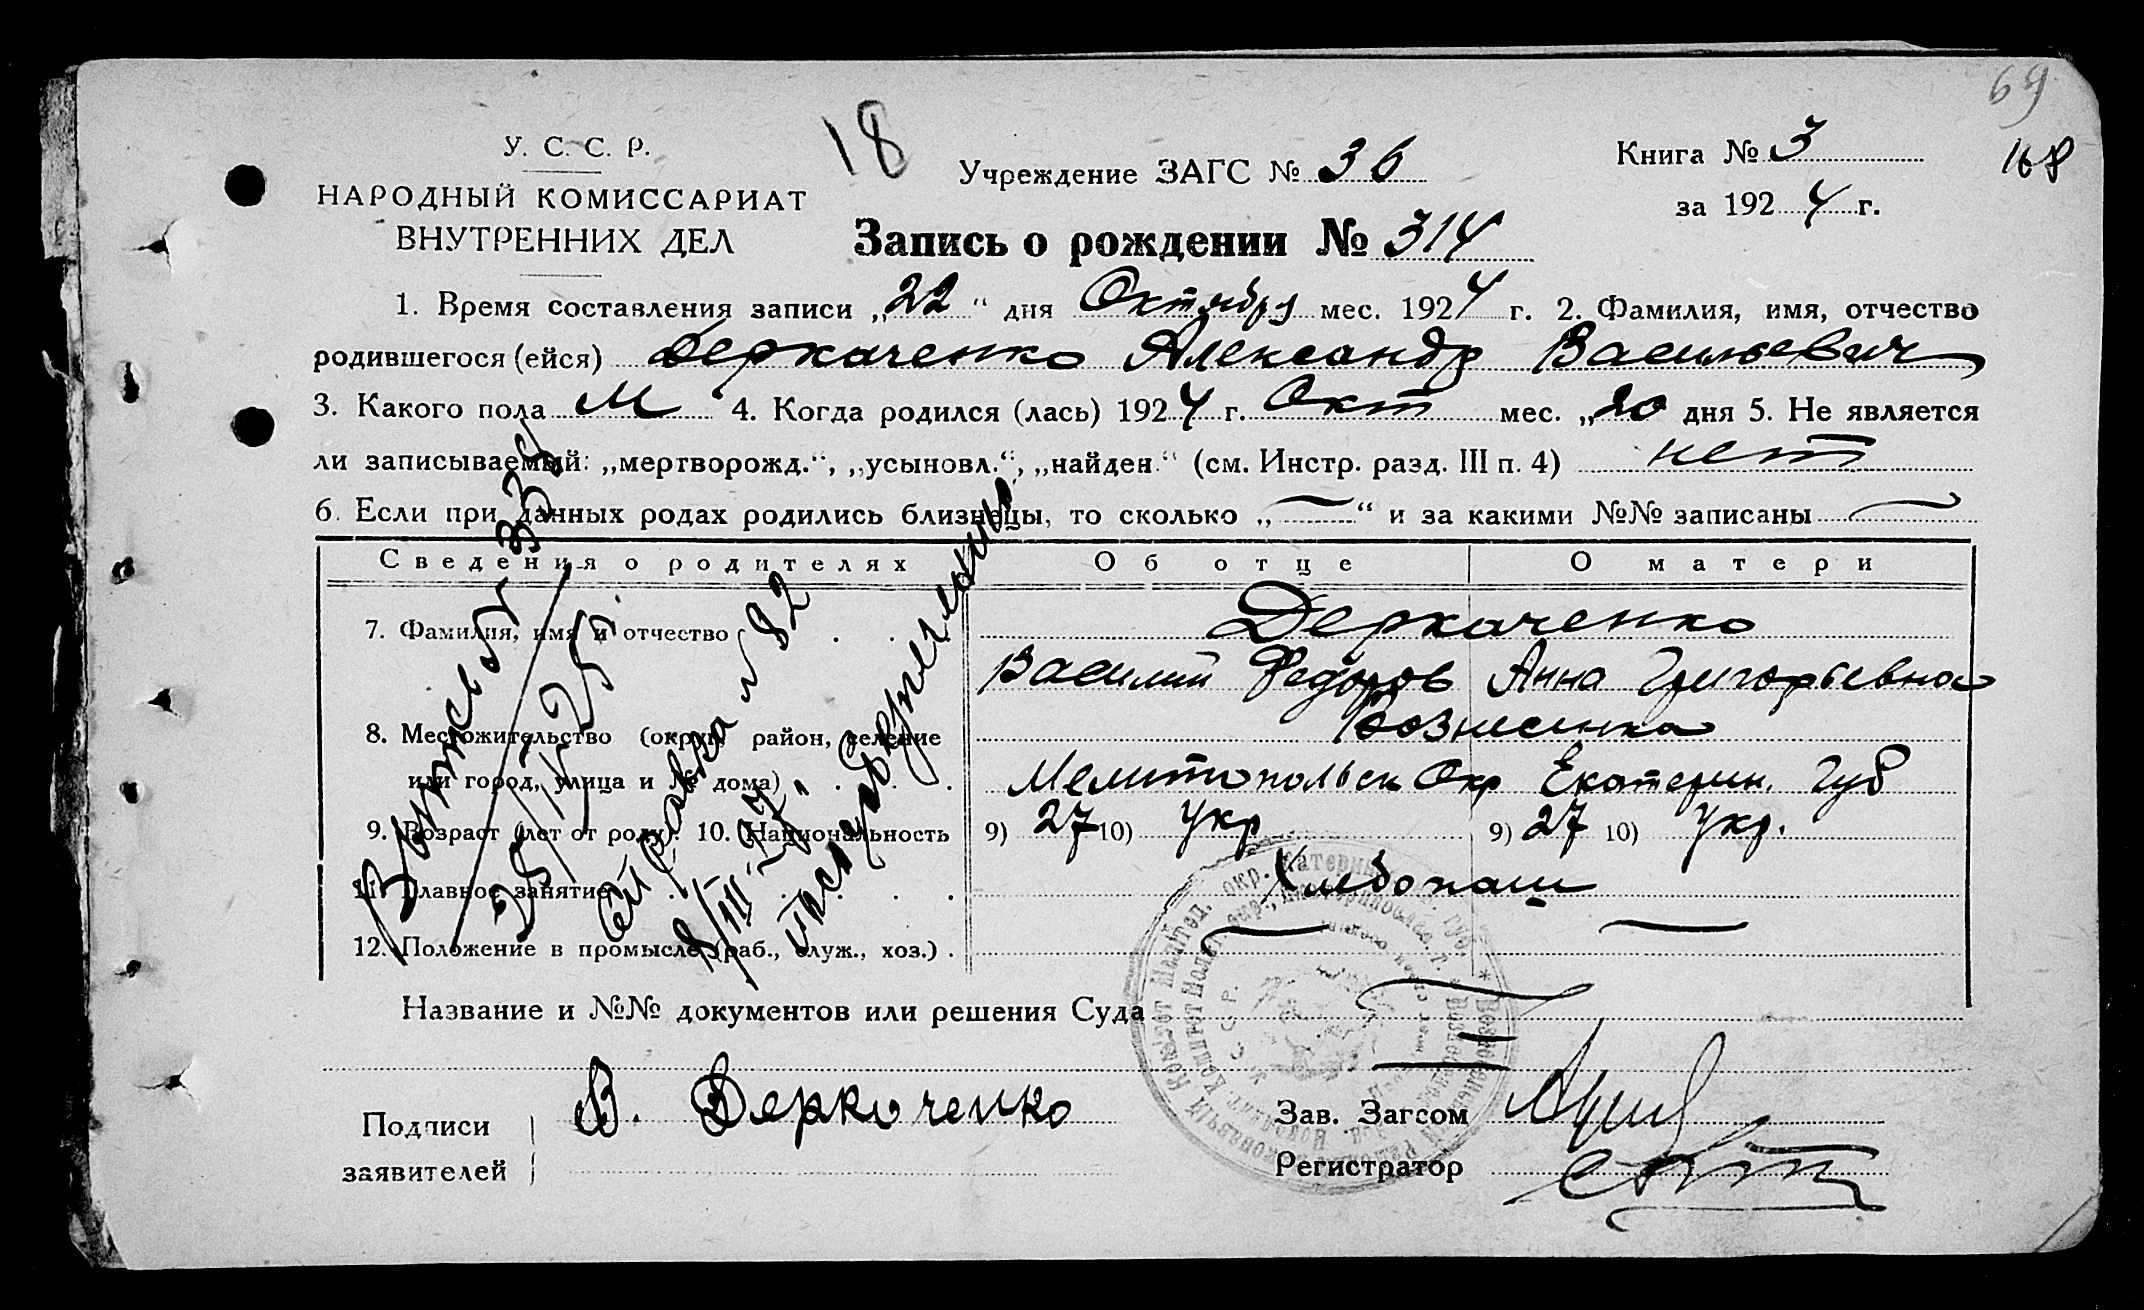 69
168
18
У. С. С. Р.
НАРОДНЫЙ КОМИССАРИАТ
ВНУТРЕННИХ ДЕЛ
Учреждение ЗАГС № 36
Книга № 3
за 1924 г.
Запись о рождении № 314
1. Время составления записи „22“ дня Октября мес. 1924 г. 2. Фамилия, имя, отчество
родившегося (ейся) Деркаченко Александр Васильевич
3. Какого пола М 4. Когда родился (лась) 1924 г. Окт мес. „20 дня 5. Не является
ли записываемый: „мертворожд.“, „усыновл.“, „найден.“ (см. Инстр. разд. III п. 4) нет
6. Если при данных родах родились близнецы, то сколько „—“ и за какими №№ записаны —
Сведения о родителях Об отце О матери
7. Фамилия, имя и отчество Деркаченко
Василий Федоров Анна Григорьевна
8. Местожительство (округ, район, селение Вознесенка
или город, улица и № дома) Мелитопольск Окр Екатерин. Губ
9. Возраст (лет от роду). 10. Национальность 9) 27 10) Укр 9) 27 10) Укр.
11. Главное занятие Хлебопаш
12. Положение в промысле (раб., служ., хоз.) — —
Название и №№ документов или решения Суда —
Подписи заявителей В. Деркоченко
Зав. Загсом
Регистратор
справка № 82